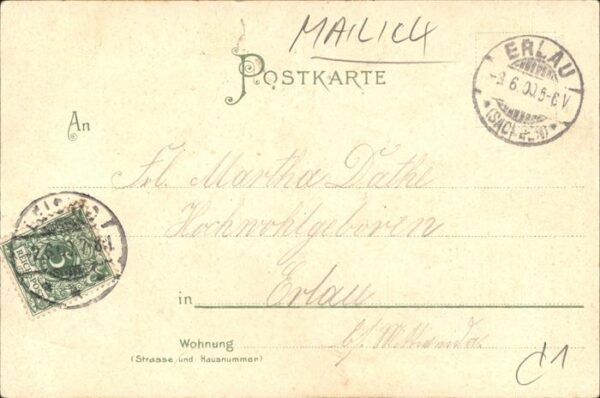 MAILICK
POSTKARTE
ERLAU
6.00.5-6V
(SACHSEN)
An
Frl. Martha Dathe
Hochwohlgeboren
in Erlau
Wohnung
(Strasse und Hausnummer)
b/ Mittweida
5
d1